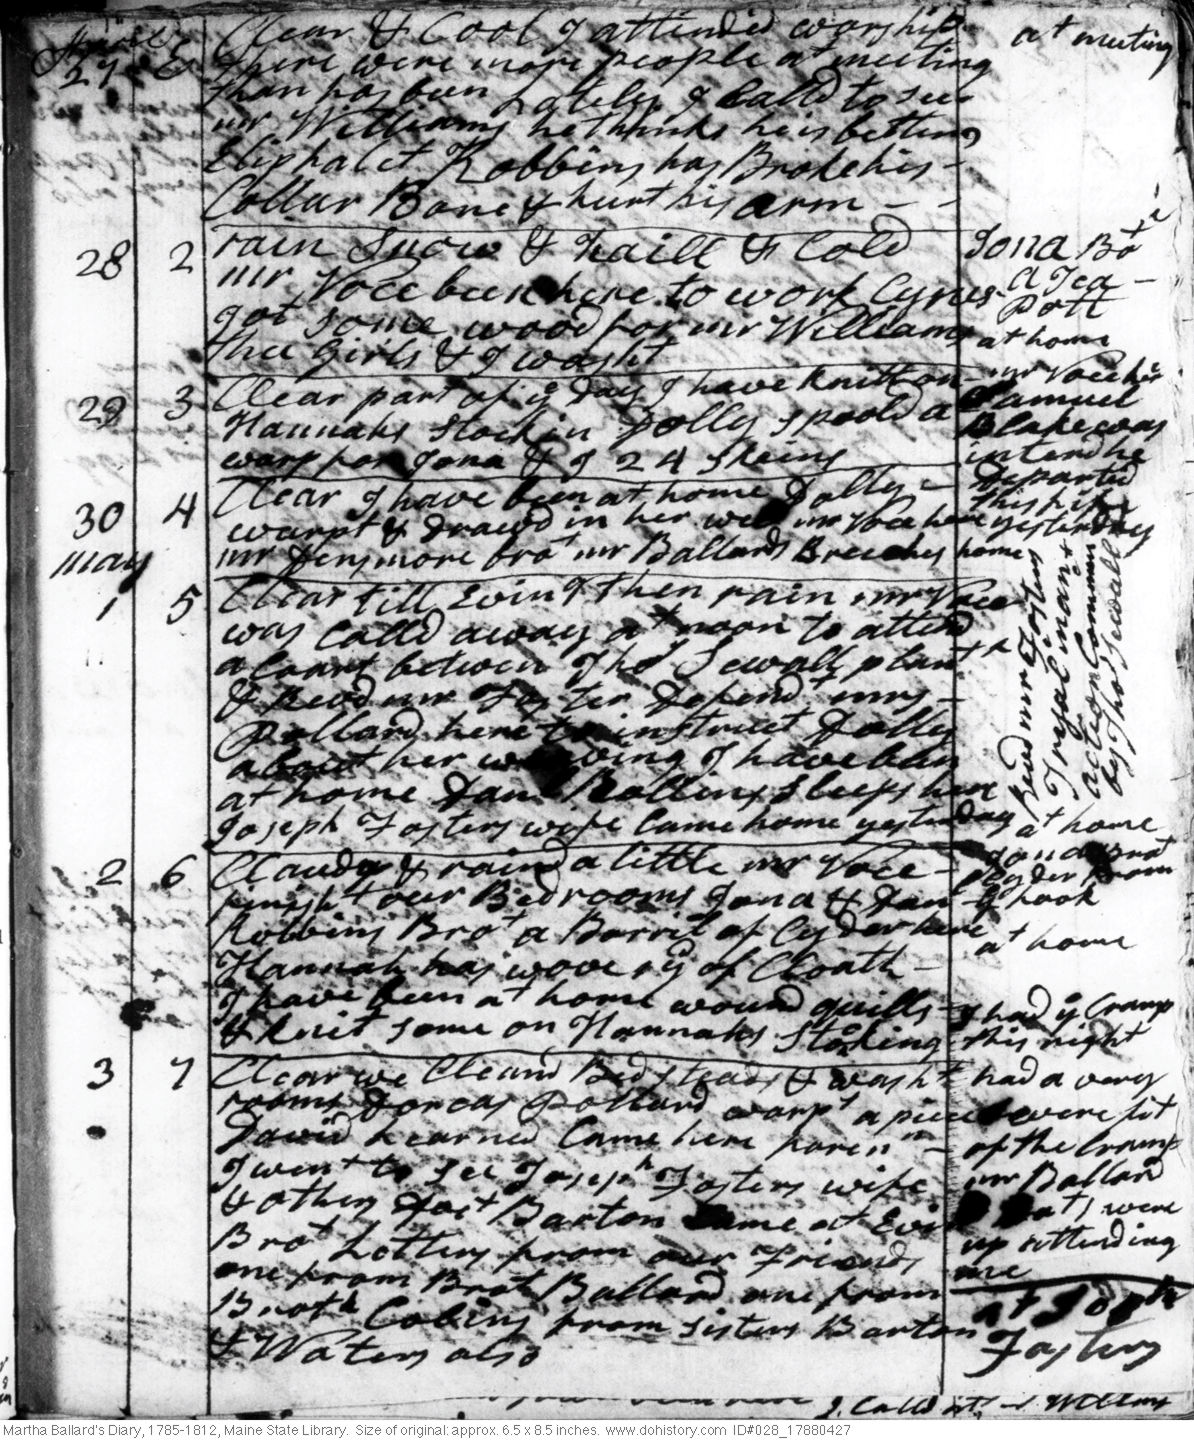 April
27 E
Clear & Cool I attended worship
there were more people at meeting
than has been Lately I Calld to see
mr Williams he thinks he is better
Eliphalet Robbins has Broke his
Collar Bone & hurt his arm
at meeting
28 2
rain Snow & haill & Cold
mr Voce been here to work Cyrus
got some wood for mr Williams
thee Girls & I washt
Jona Bot
a Tea
Pott
at home
29 3
Clear part of ye day I have knitt on
Hannahs Stockin Dolly spoold a
warp for Jona & I 24 Skeins
mr Voce here
Samuel
Blake was
interd he
Departed
this life
yesterday
30 4
Clear I have been at home Dolly
warpt & drawd in her web mr Voce here
mr Densmore brot mr Ballards Breeches home
May
1 5
Clear till Eving then rain mr Voce
was Calld away at noon to attend
a Court between Tho Sewall plant
& Revd mr Foster Defendt mrs
Pollard here to instruct Dolly
about her weaving I have been
at home Dan Robbins Sleeps here
Joseph Fosters wife Came home yesterday
Revd mr Fosters
Tryal in an
action Commencd
by Tho Sewall
at home
2 6
Cloudy & raind a little mr Voce
finisht our Bedrooms Jona & Dan
Robbins Brot a Barril of Cyder here
Hannah has wove of Cloath
I have been at home wound quills
& knit some on Hannahs Stocking
Jona Brot
Cyder from
ye hook
at home
I had ye Cramp
this night
3 7
Clear we Cleand Bedsteads & washt
rooms Dorcas Pollard warpt a piece
David Learned Came here foren n
I went to see Joseph Fosters wife
& others Doct Barton Came at Evin
Brot Letters from our Friends
one from Brot Ballard one from
Broth Cobins from sisters Barton
& Waters also
had a very
severe fit
of the Cramp
mr Ballard
were
up attending
me
at Joseph
Fosters
I Calld at mr Williams
Martha Ballard's Diary, 1785-1812, Maine State Library. Size of original:approx. 6.5 x 8.5 inches. www.dohistory.com ID#028_17880427